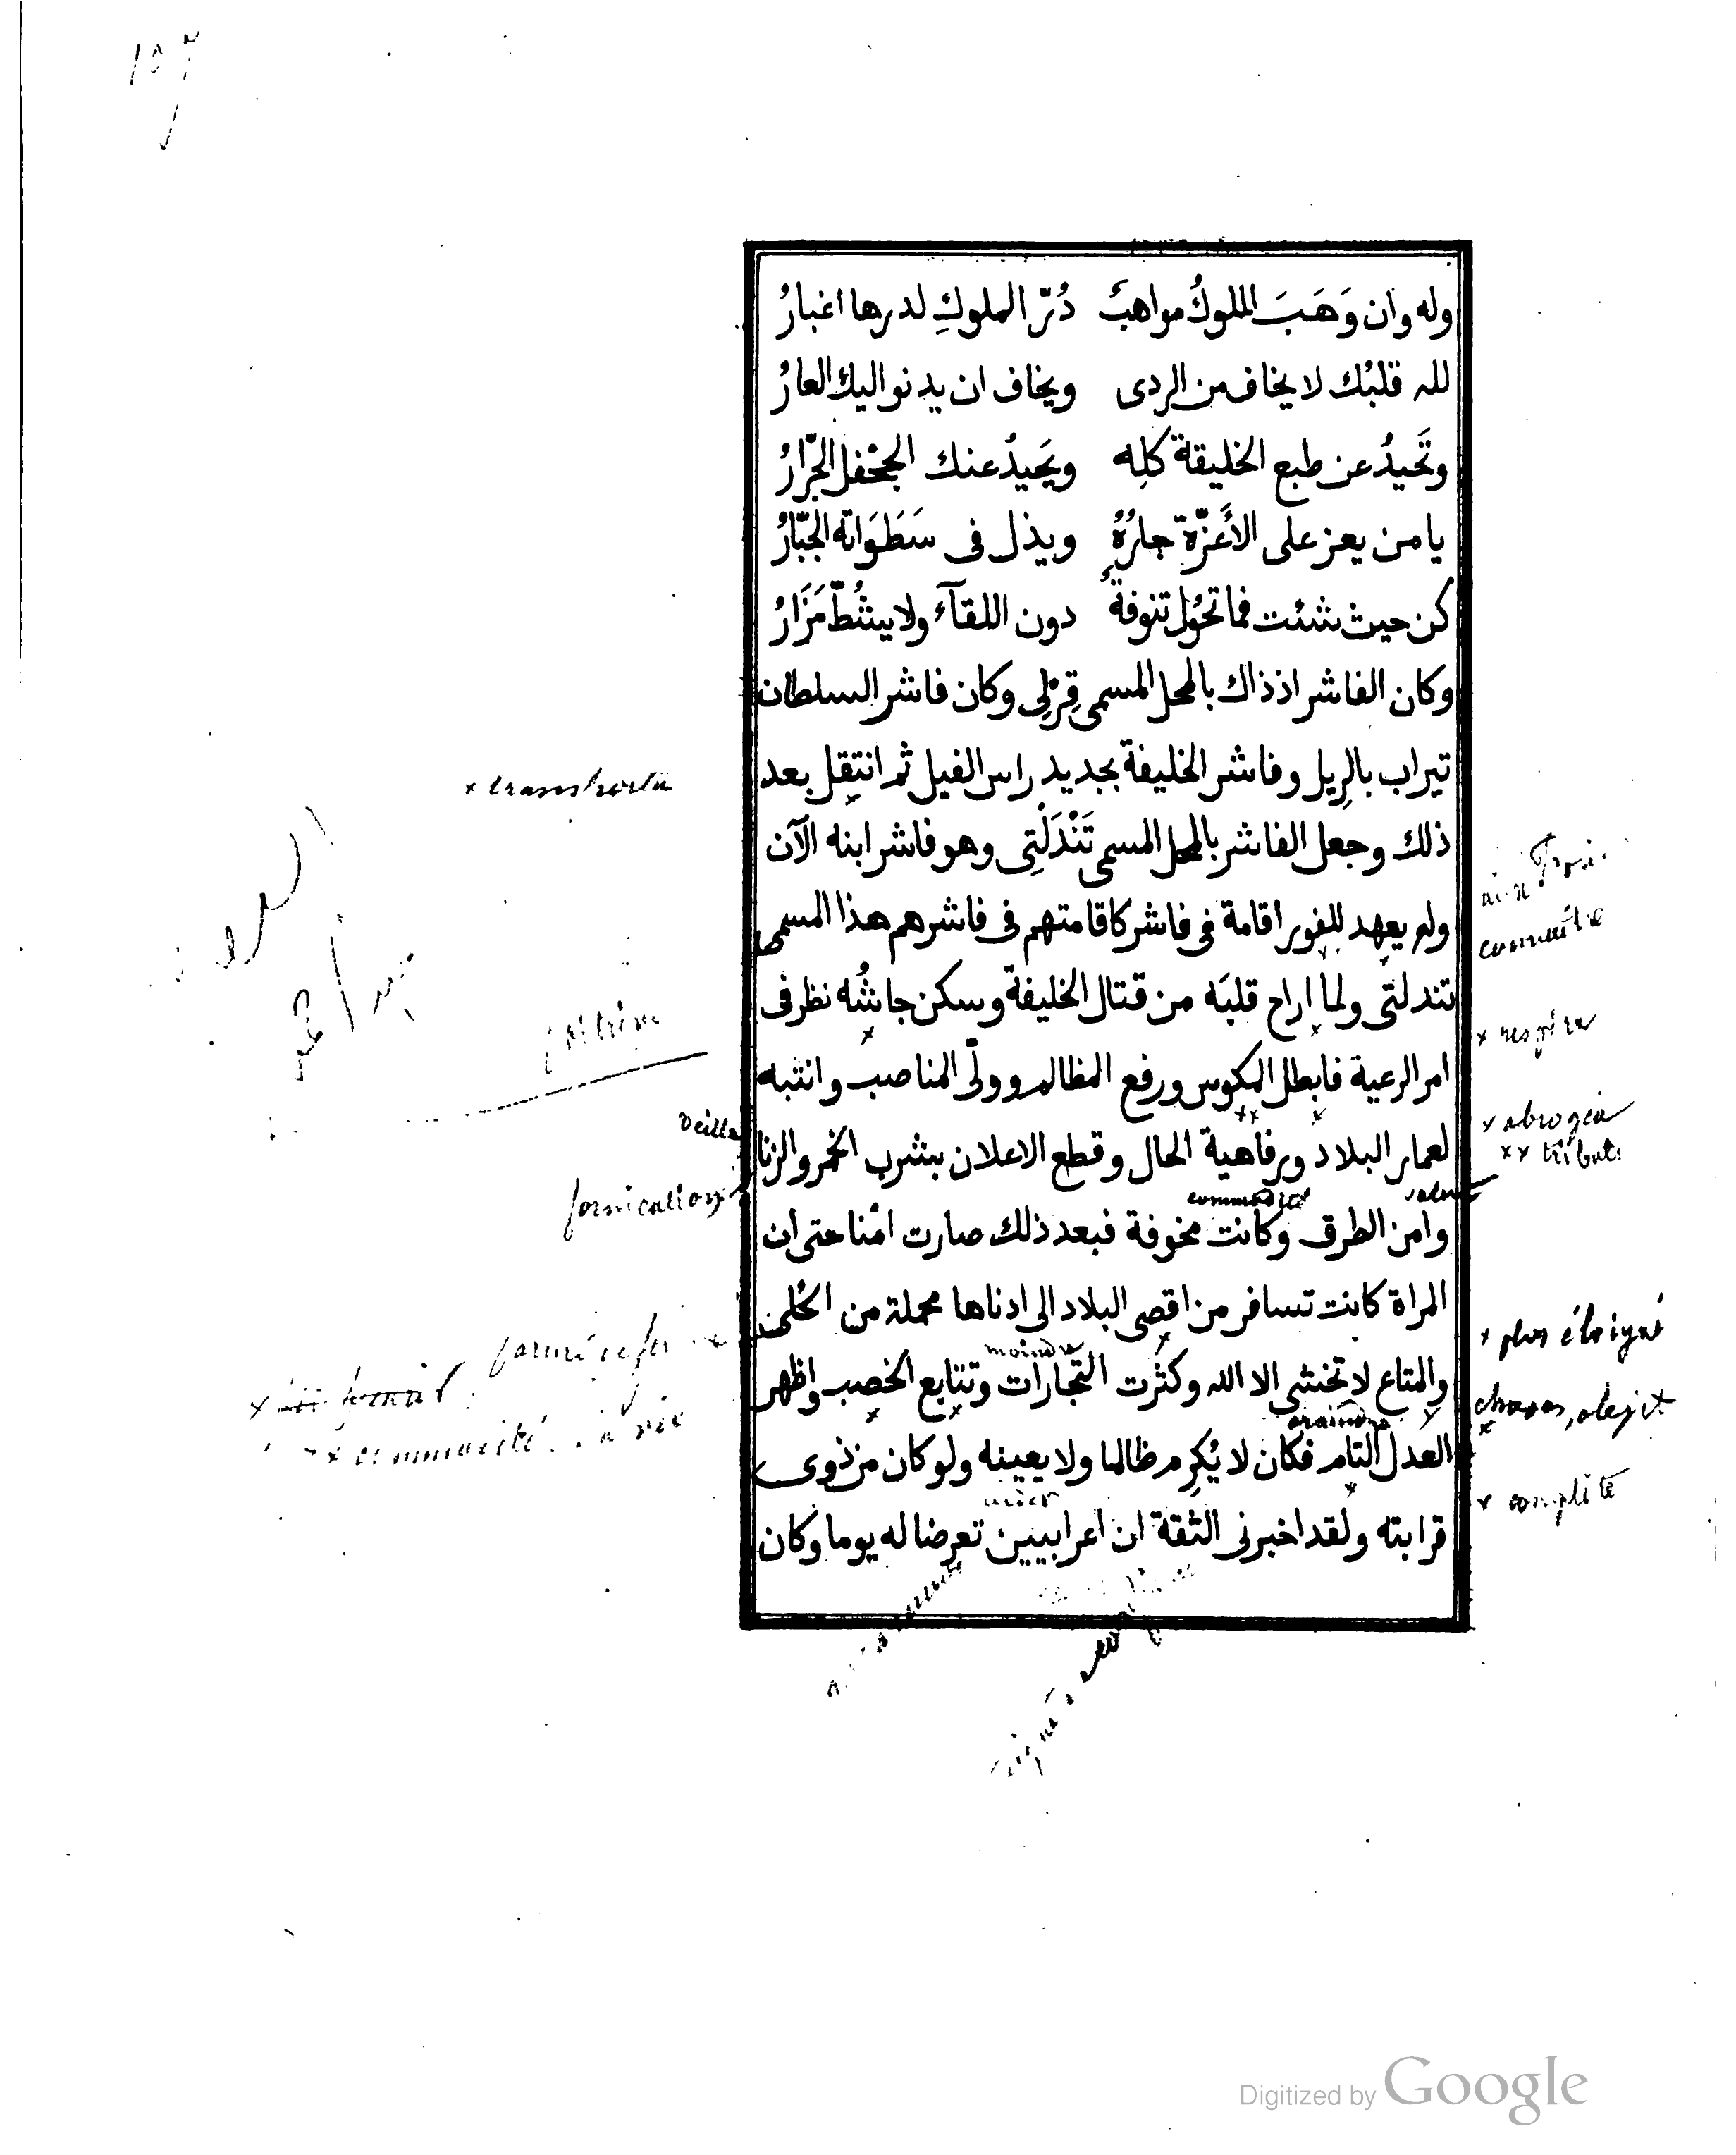 وله وان وَهَبَ الملوكُ مواهبَ دُرّ الملوكِ لدرها اغبارُ
لله قلبُك لا يخاف من الردى ويخاف ان يدنو اليك العارُ
وتَحيدُ عن طبع الخليقة كلِه ويَحيدُ عنك الجحْفل الجرّارُ
يا من يعز على الأعَزّة جارُهُ ويذل فى سَطَوَاته الجبّارُ
كن حيث شئت فما تحُول تنوفةٌ دون اللقآء ولا يشُطّ مَزَارُ
وكان الفاشر اذ ذاك بالمحل المسمى قِرْلِى وكان فاشر السلطان
تيراب بالرِيل وفاشر الخليفة بجديد راس الفيل ثم انتقل بعد
× transporta
ذلك وجعل الفاشر بالمحل المسمى تَنْدَلْتِى وهو فاشر ابنه الآن
ولم يعهد للفور اقامة فى فاشر كاقامتهم فى فاشرهم هذا المسمى
connaitre
تندلتى ولما اراح قلبَه من قتال الخليفة وسكن جاشُه نظر فى
× respira
امر الرعية فابطل المكوس ورفع المظالم وولّى المناصب وانتبه
× abrogea
×× tributs
veilla
لعمار البلاد ورفاهية الحال وقطع الاعلان بشرب الخمر والزنا
fornication
commodité
وامن الطرق وكانت مخوفة فبعد ذلك صارت امْنا حتى ان
المراة كانت تسافر من اقصى البلاد الى ادناها محملة من الحُلى
× plus éloigné
moindre
والمتاع لا تخشى الا الله وكثرت التّجارات وتتابع الخصب واظهر
× commodité
craindre
العدل التام فكان لا يُكرِم ظالما ولا يعينه ولو كان من ذوى
× complète
aider
قرابته ولقد اخبرنى الثقة ان اعرابيين تعرضا له يوما وكان
Digitized by Google